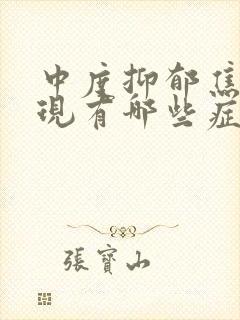 中度抑郁焦
现有哪些症
張寶山